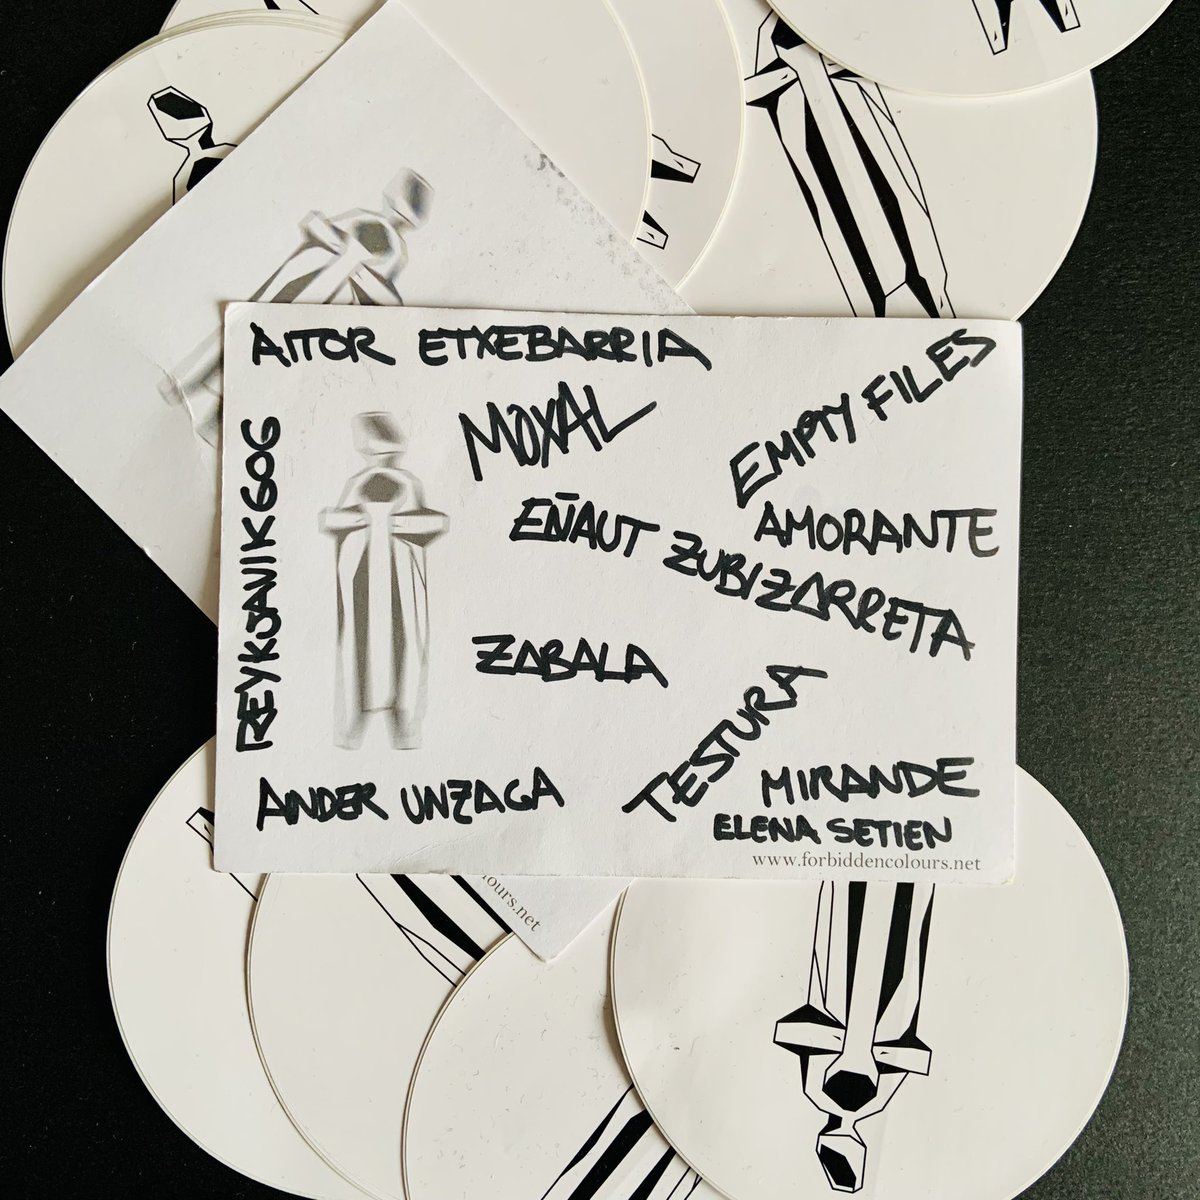 AITOR ETXEBARRIA
MOXAL
EMPTY FILES
REYKJAVIK606
EÑAUT ZUBIZARRETA
AMORANTE
ZABALA
TESTURA
ANDER UNZAGA
MIRANDE
ELENA SETIEN
www.forbiddencolours.net
ours.net